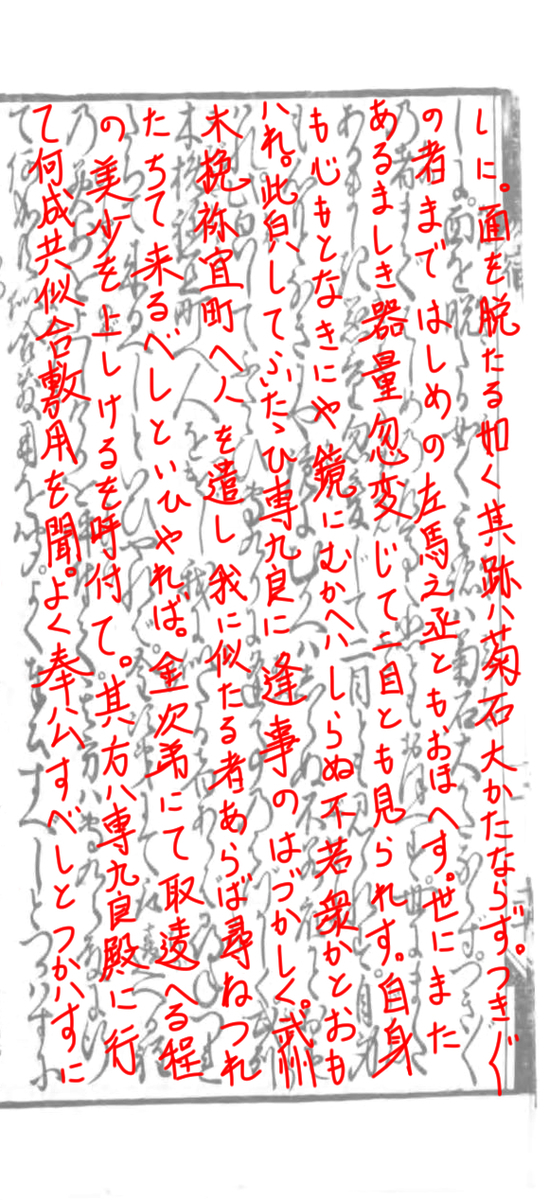 しに。面を脱たる如く其跡ハ菊石大かたならず。つきぐ
の者まではしめの左馬之丞ともおほへす。世にまた
あるましき器量忽変じて二目とも見られす。自身
も心もとなきにや鏡にむかへハしらぬ不若衆かとおも
ハれ。此皃ハしてふたゝひ専九良に逢事のはづかしく。武州
木挽祢宜町へ人を遣し我に似たる者あらば尋ねつれ
たちて来るべしといひやれば。金次弟にて取違へる程
の美少を上しけるを呼付て。其方ハ専九良殿に行
て何成共似合敷用を聞。よく奉公すべしとつかハすに